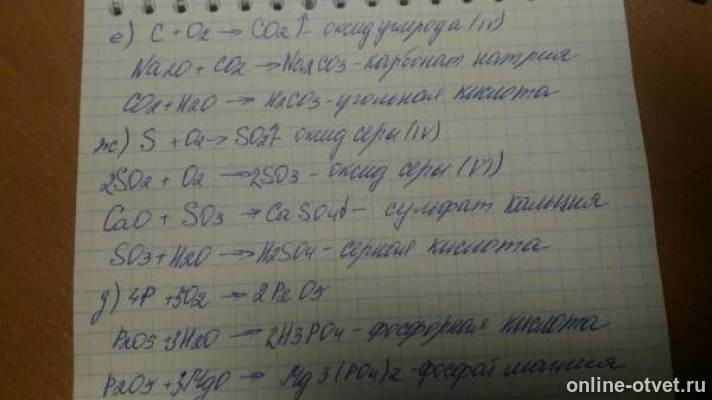 е) C + O2 → CO2↑ - оксид углерода (IV)
Na2O + CO2 → Na2CO3 - карбонат натрия
CO2 + H2O → H2CO3 - угольная кислота
ж) S + O2 → SO2↑ оксид серы (IV)
2SO2 + O2 → 2SO3 - оксид серы (VI)
CaO + SO3 → CaSO4↓ - сульфат кальция
SO3 + H2O → H2SO4 - серная кислота
д) 4P + 5O2 → 2P2O5
P2O5 + 3H2O → 2H3PO4 - фосфорная кислота
P2O5 + 3MgO → Mg3(PO4)2 - фосфат магния
online-otvet.ru